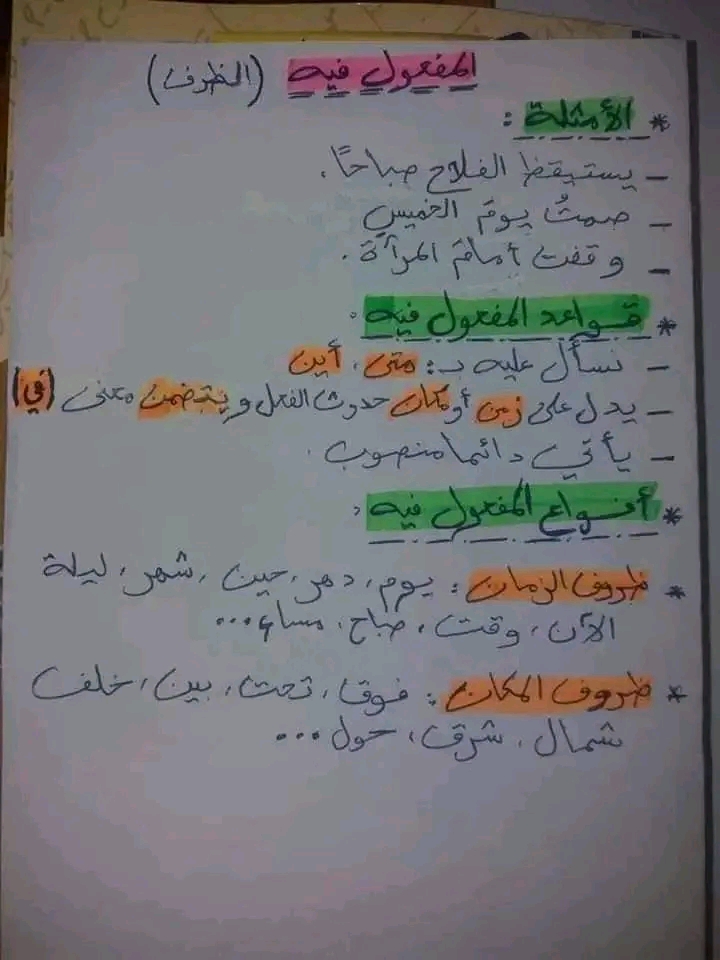 المفعول فيه (الظرف)
* الأمثلة :
- يستيقظ الفلاح صباحًا.
- صمتُ يومَ الخميسِ
- وقفت أمامَ المرآة.
* قواعد المفعول فيه :
- نسأل عليه بـ: متى ، أين
- يدل على زمن أو مكان حدوث الفعل ويتضمن معنى (في)
- يأتي دائما منصوب .
* أنواع المفعول فيه :
* ظروف الزمان : يوم، دهر، حين ، شهر، ليلة
الآن ، وقت ، صباح، مساء ...
* ظروف المكان : فوق ، تحت ، بين ، خلف
شمال ، شرق ، حول ...